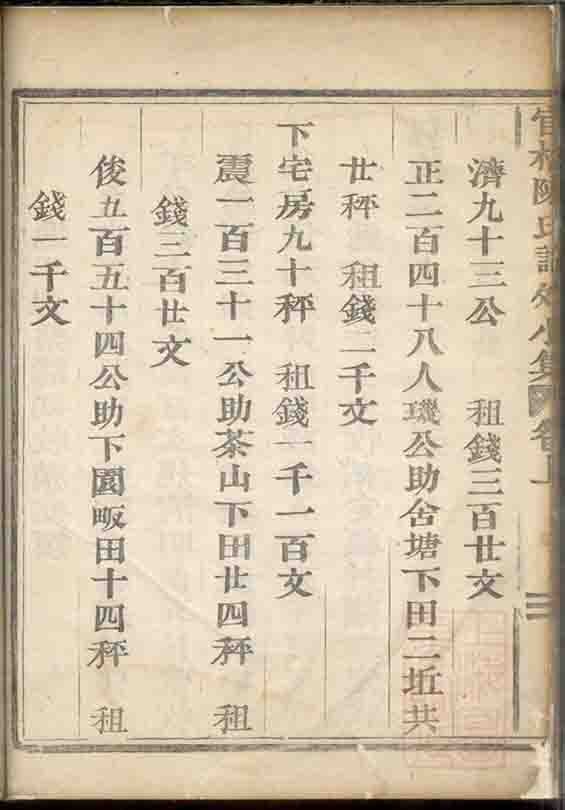 濟九十三公 租錢三百廿文
正二百四十八人璣公助舍塘下田二坵共
廿秤 租錢二千文
下宅房九十秤 租錢一千一百文
震一百三十一公助茶山下田廿四秤 租
錢三百廿文
俊五百五十四公助下園畈田十四秤 租
錢一千文